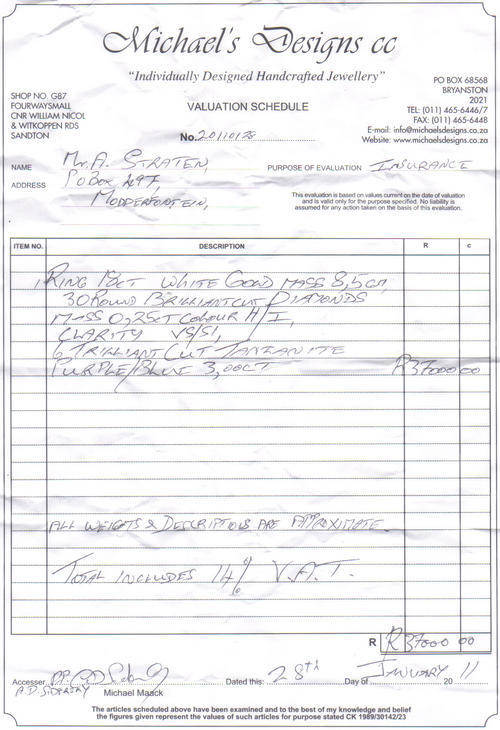 Michael's Designs cc
"Individually Designed Handcrafted Jewellery"
SHOP NO. G87
FOURWAYSMALL
CNR WILLIAM NICOL
& WITKOPPEN RDS
SANDTON
VALUATION SCHEDULE
No. 20110128
PO BOX 68568
BRYANSTON
2021
TEL: (011) 465-6446/7
FAX: (011) 465-6448
E-mail: info@michaelsdesigns.co.za
Website: www.michaelsdesigns.co.za
NAME Mr. A. STRATEN,
ADDRESS P.O Box
MODDERFONTEIN,
PURPOSE OF EVALUATION INSURANCE
This evaluation is based on values current on the date of valuation
and is valid only for the purpose specified. No liability is
assumed for any action taken on the basis of this evaluation.
ITEM NO. DESCRIPTION R c
1, RING 18CT WHITE GOLD MASS 8,5GM,
30 ROUND BRILLIANT CUT DIAMONDS
MASS 0,25CT COLOUR H/I,
CLARITY VS/SI,
6 TRILLIANT CUT TANZANITE
PURPLE/BLUE 3,00CT R37000 00
ALL WEIGHTS & DESCRIPTIONS ARE APPROXIMATE
TOTAL INCLUDES 14% V.A.T.
R R37000 00
Accesser P.P.
A.D.
Michael Maack
Dated this: 28th Day of JANUARY 20 11
The articles scheduled above have been examined and to the best of my knowledge and belief
the figures given represent the values of such articles for purpose stated CK 1989/30142/23